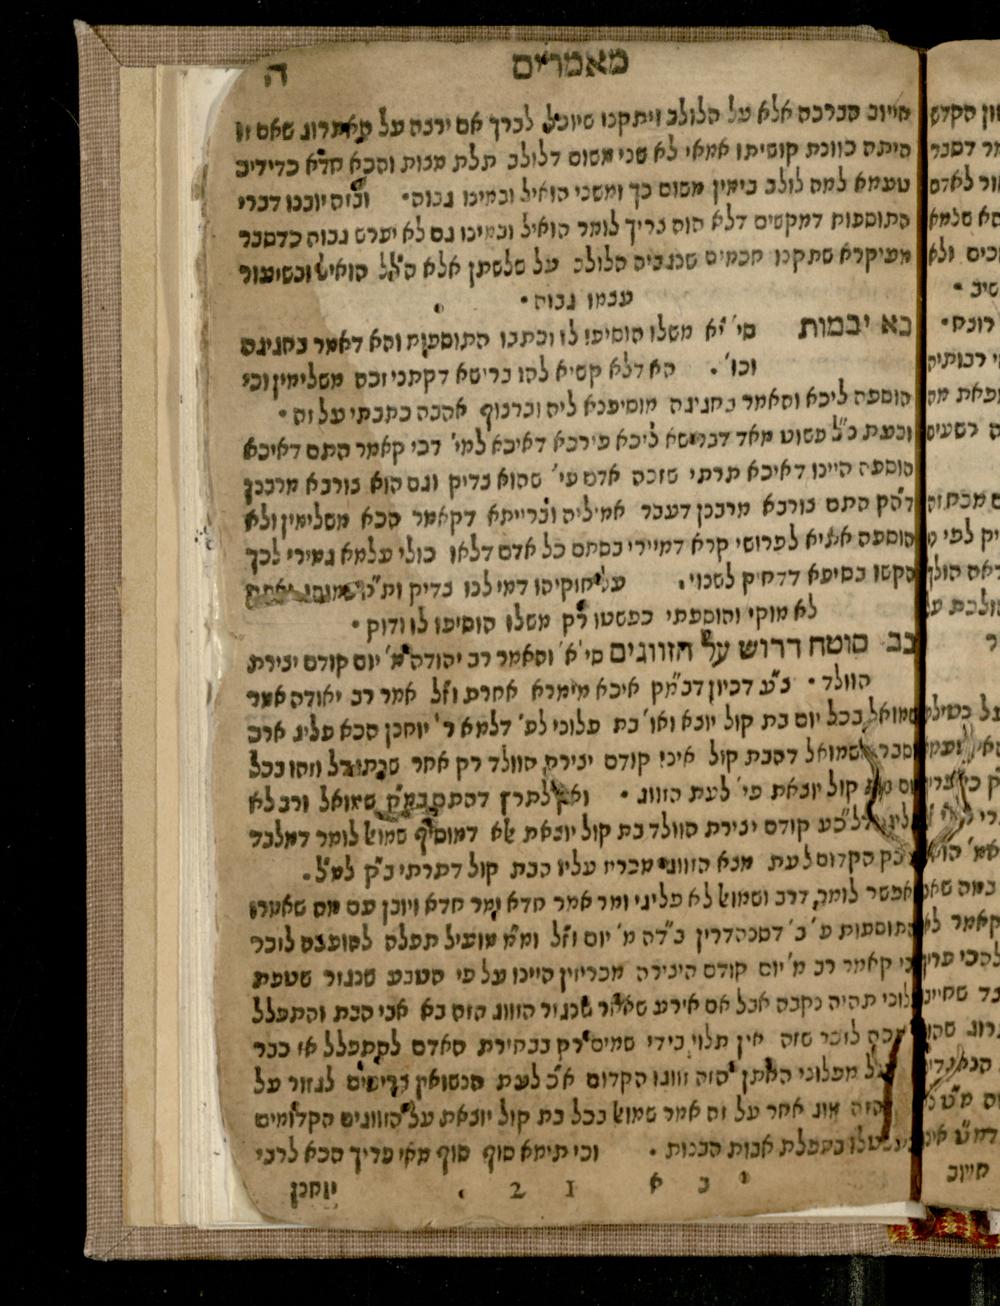 מאמרים ה
חיוב הברכה אלא על הלולב ויתקנו שיוכל לברך אם ירצה על האתרוג שאם זו
היתה כוונת קושיתו אמאי לא שני משום דלולב תלת מצות והכא חדא כדידיב
טעמא למה לולב בימין משום כך ומשני הואיל ובמינו גבוה׃ ובזה יובנו דברי
התוספות דמקשים דלא הוה צריך לומר הואיל ובמינו גם לא יערש גבוה כדמבר
מעיקרא שתקנו חכמים שבגביה הלולב על שלשתן אלא הל״ל הואיל ובשיעור
עצמו גבוה׃
כא יבמות סי׳ י״א משלו הוסיפו לו וכתבו התוספות והא דאמר בחגיגה
וכו׳. הא דלא קשיא להו ברישא דקתני זכה משלימין וכי
הוספה ליכא והאמר בחגיגה מוסיפנא ליה וברצוף אהבה כתבתי על זה׃
וכעת נ״ל פשוט מאד דברישא ליכא פירכא דאיכא למי׳ דכי קאמר התם דאיכא
הוספה היינו דאיכא תרתי שזכה אדם עי׳ שהוא צדיק וגם הוא צורבא מרבנן
דהך התם צורבא מרבנן דעבר אמיליה וברייתא דקאמר הכא משלימין ולא
הוספה אתיא לפרושי קרא דמיירי בסתם כל אדם דלאו כולי עלמא גמירי לכך
הקשו בסיפא דדחיק לשנוי.
לא מוקי והוספתי כפשטו רק משלו הוסיפו לו ודוק׃
כב סוטה דרוש על הזווגים סי׳ א׳ והאמר רב יהודה מ׳ יום קודם יצירת
הוולד׃ צ״ע דכיון דב״מק איכא מימרא אחרת וז״ל אמר רב יאודה אמר
שמואל בכל יום בת קול יוצא ואו׳ בת פלוני לפ׳ דלמא ר׳ יוחנן הכא פליג ארב
וסבר לשמואל דהבת קול אינו קודם יצירת הוולד רק אחר שנתגדל וזהו בכל
יום בת קול יוצאת פי׳ לעת הזווג׃ ואין לתרץ דהתם במ״ק שמואל ורב לא
פליגי דל״כע קודם יצירת הוולד בת קול יוצאת אלא דמוסיף שמוא׳ לומר דמלבד
הב״ק הקדום לעת מצא הזווג מכריז עליו הבת קול דתרתי ב״ק למ״ל.
ואפשר לומר, דרב ושמוא׳ לא פליגי ומר אמר חדא ומר חדא ויובן עם מה שאמרו
התוספות פ׳ ב׳ דסנהדרין ב״דה מ׳ יום וז״ל ומ״מ מועיל תפלה לקועבם לזכר
כי קאמר רב מ׳ יום קודם היצירה מכריזין היינו על פי הטבע שנגזר שטפת
פלוני תהיה נקבה אבל אם אירע שאחר שנגזר הזווג הזה בא אבי הבת והתפלל
והפכה לזכר שזה אין תלוי בידי שמים רק בבחירת האדם להתפלל אז כבר
בטל מפלוני החתן הזה זווגו הקדום א״כ לעת הנשואין צריכים לגזור על
הזה זווג אחר על זה אמר שמוא׳ בכל בת קול יוצאת על הזווגים הקדומים
שנתבטלו בתפלת אבות הבנות. וכי תימא סוף סוף מאי פריך הכא לרבי
י ב א 1 2 . יוחנן